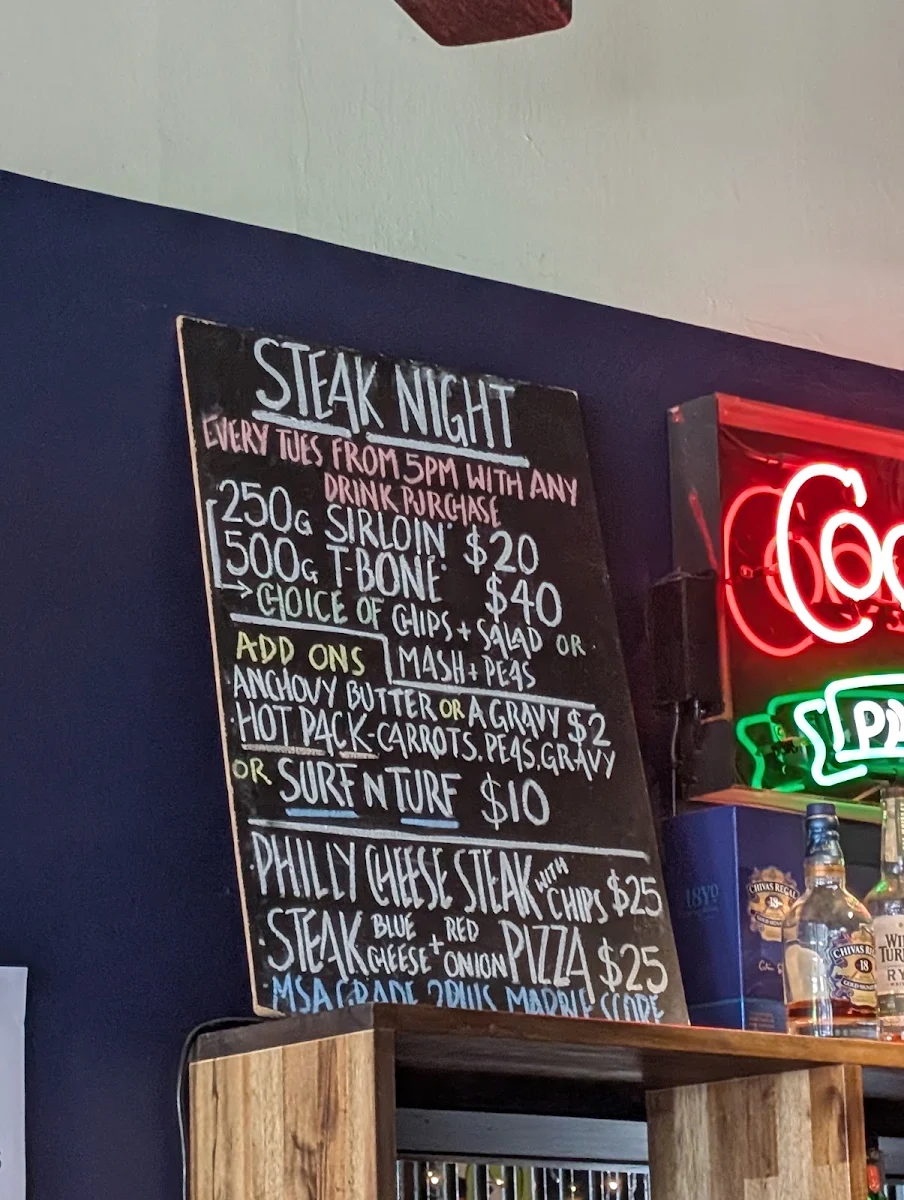 STEAK NIGHT
EVERY TUES FROM 5PM WITH ANY
DRINK PURCHASE
250G SIRLOIN $20
500G T-BONE $40
→ CHOICE OF CHIPS + SALAD OR
MASH + PEAS
ADD ONS
ANCHOVY BUTTER OR A GRAVY $2
HOT PACK-CARROTS, PEAS, GRAVY
OR SURF N TURF $10
PHILLY CHEESE STEAK WITH CHIPS $25
STEAK BLUE CHEESE + RED ONION PIZZA $25
MSA GRADE 2PLUS MARBLE SCORE
18YO
CHIVAS REGAL
18
CHIVAS
18
RY